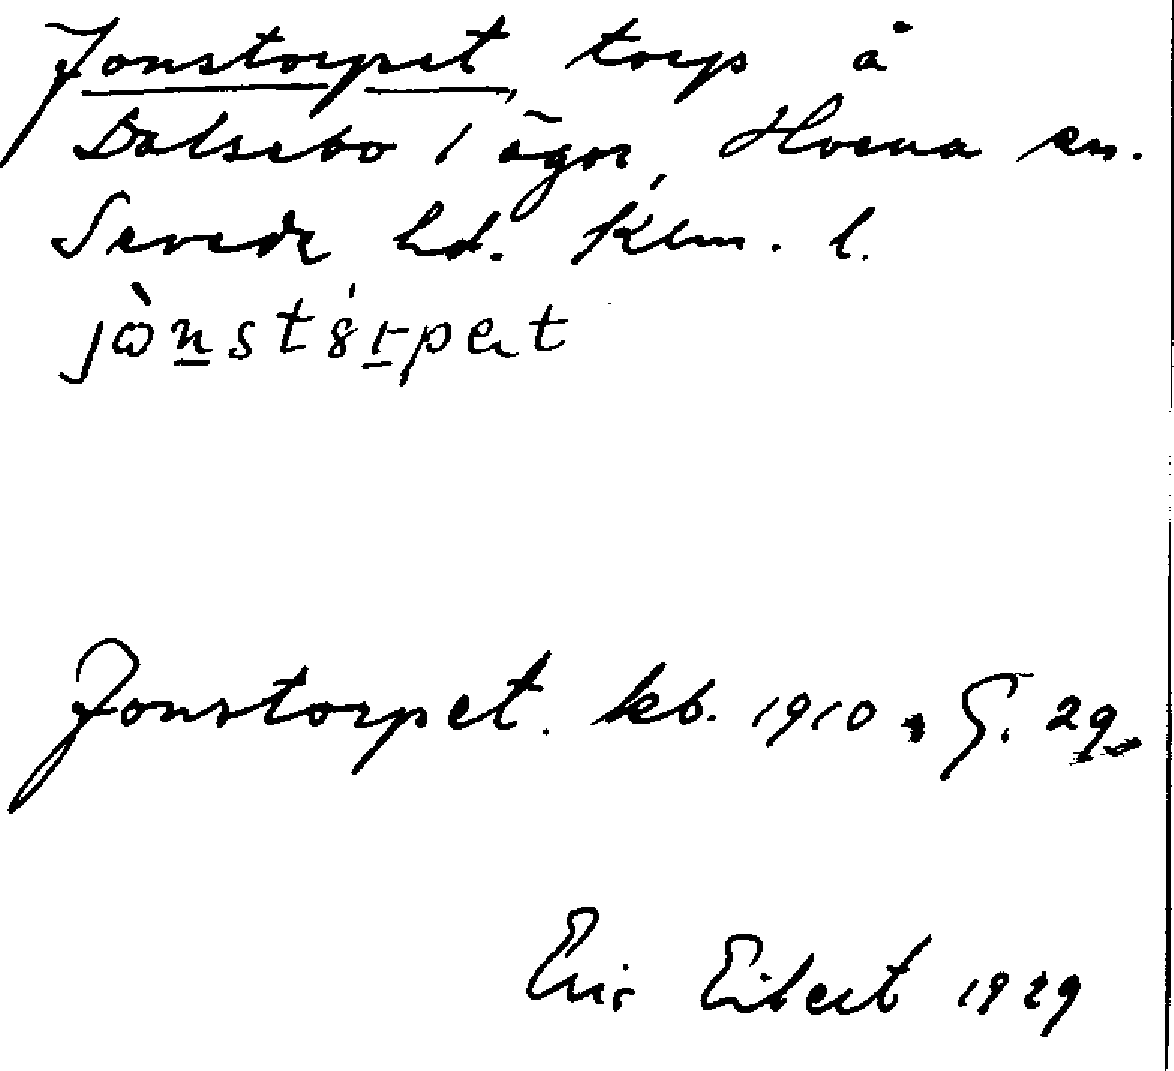 Jonstorpet, torp å
Dalsebo 1 ägor, Hvena sn.
Sevede hd. Klm. l.
Jonstorpet. kb. 1910, S. 29
Eric Eibert 1929